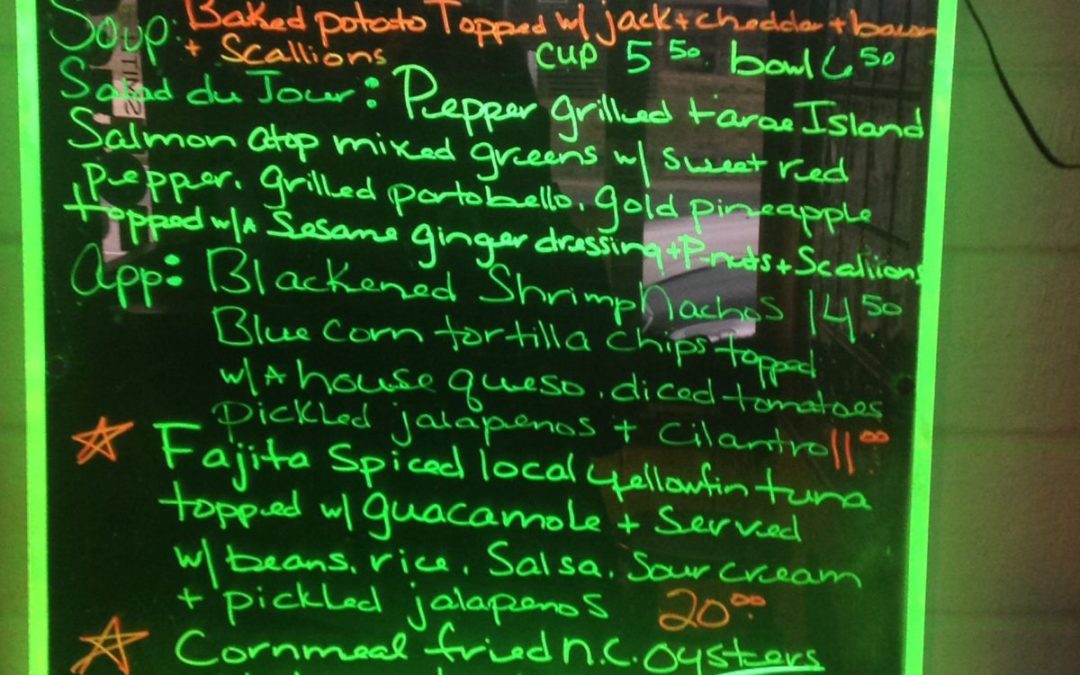 Soup: Baked potato Topped w/ jack + cheddar + bacon
+ Scallions cup 5 50 bowl 6 50
Salad du Jour: Pepper grilled Faroe Island
Salmon atop mixed greens w/ sweet red
pepper, grilled portobello, gold pineapple
topped w/A Sesame ginger dressing + P-nuts + Scallions
App: Blackened Shrimp Nachos 14 50
Blue corn tortilla chips topped
w/A house queso, diced tomatoes
pickled jalapenos + cilantro 11 00
Fajita Spiced local yellowfin tuna
topped w/ guacamole + Served
w/ beans, rice, Salsa, Sour cream
+ pickled jalapenos 20 00
Cornmeal fried N.C. oysters